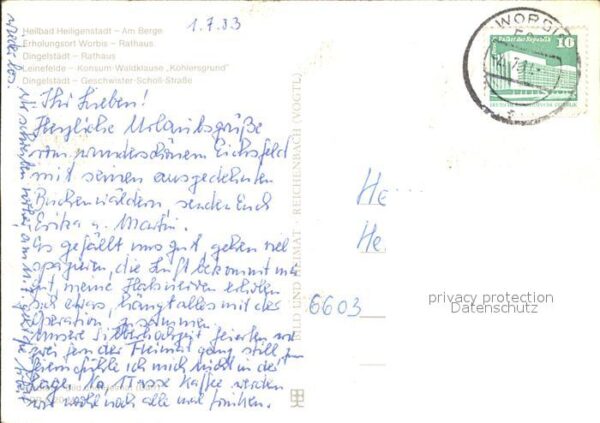 Heilbad Heiligenstadt – Am Berge
Erholungsort Worbis – Rathaus
Dingelstädt – Rathaus
Leinefelde – Konsum-Waldklause „Köhlersgrund“
Dingelstädt – Geschwister-Scholl-Straße
1.7.83
Ihr Lieben!
Herzliche Urlaubsgrüße
vom wunderschönen Eichsfeld
mit seinen ausgedehnten
Buchenwäldern senden Euch
Erika u. Martin.
Es gefällt uns gut, gehen viel
spazieren, die Luft bekommt uns
gut, meine
sich etwas, hängt alles mit der
Operation zusammen.
Unsere Silberhochzeit feierten wir
zwei fern der Heimat ganz still, zum
Feiern fühle ich mich nicht in der
Lage. Na, Tasse Kaffee werden
wir wohl noch alle mal trinken.
BILD UND HEIMAT · REICHENBACH (VOGTL)
WORBIS
Palast der Republik
10
He
He.
6603
privacy protection
Datenschutz